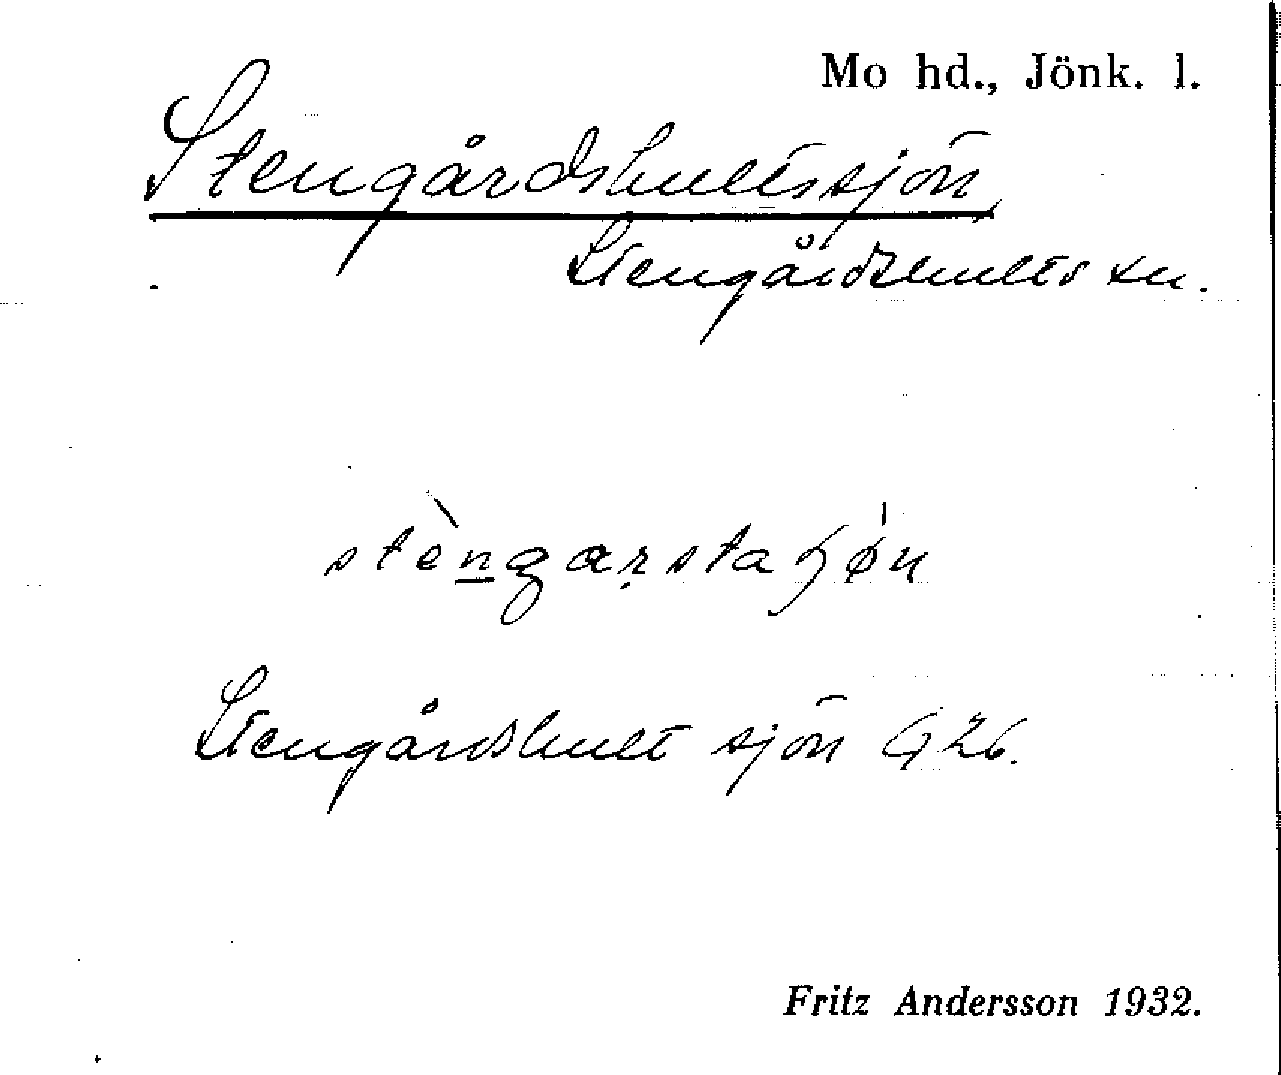 Mo hd., Jönk. l.
Stengårdshultssjön
Stengårdshults sn.
stèngarstaʃøn
Stengårdshult sjön G 26.
Fritz Andersson 1932.